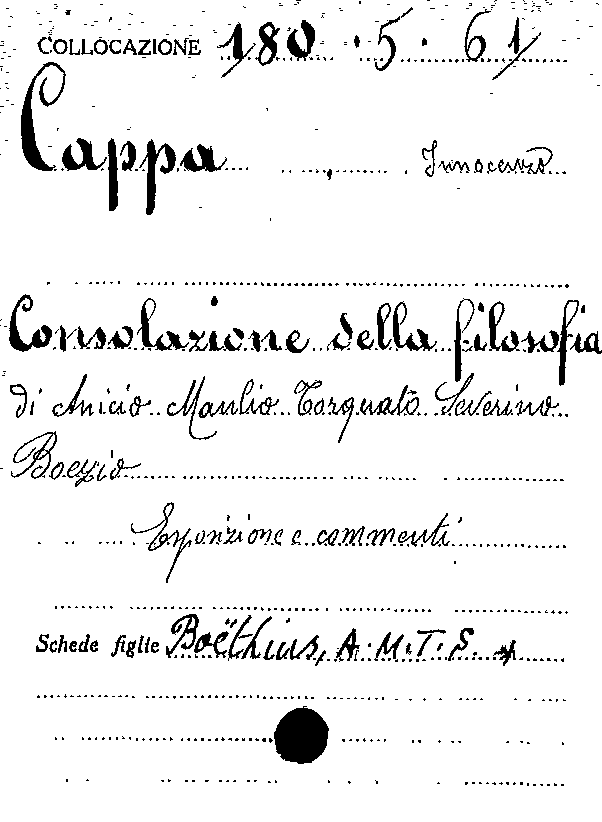 COLLOCAZIONE 180.5.61
Cappa, Innocenzo
Consolazione della filosofia
di Anicio Manlio Torquato Severino
Boezio
Esposizione e commenti
Schede figlie Boëthius, A.M.T.S. *